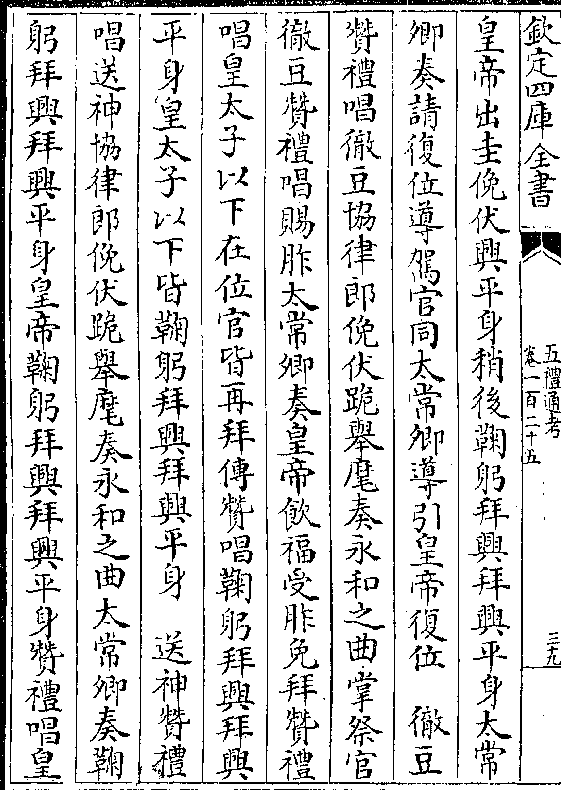 欽定四庫全書
五禮通考
卷一百二十五
三十九
皇帝出圭俛伏興平身稍後鞠躬拜興拜興平身太常
卿奏請復位導駕官同太常卿導引皇帝復位　徹豆
贊禮唱徹豆協律郎俛伏跪舉麾奏永和之曲掌祭官
徹豆贊禮唱賜胙太常卿奏皇帝飲福受胙免拜贊禮
唱皇太子以下在位官皆再拜傳贊唱鞠躬拜興拜興
平身皇太子以下皆鞠躬拜興拜興平身　送神贊禮
唱送神協律郎俛伏跪舉麾奏永和之曲太常卿奏鞠
躬拜興拜興平身皇帝鞠躬拜興拜興平身贊禮唱皇